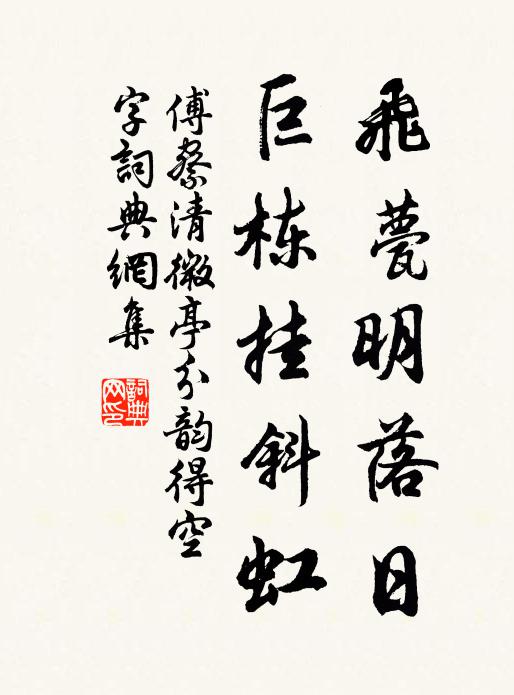 飛甍明落日
巨栋挂斜虹
傅察清微亭分韵得空
字詞典網集
詞典網印